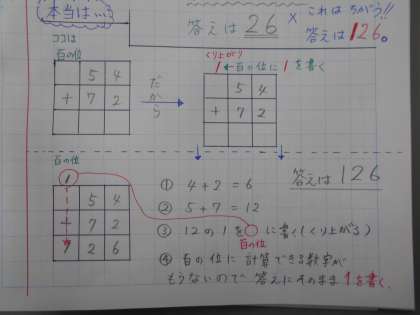 本当は…
答えは 26 × これは ちがう!!
答えは 126。
ココは
百の位
5 4
+ 7 2
だから
くり上がり
1 ← 百の位に 1 を書く
5 4
+ 7 2
百の位
1
5 4
+ 7 2
1 2 6
① 4 + 2 = 6
② 5 + 7 = 12
③ 12 の 1 を○に書く(くり上がる)
百の位
④ 百の位に計算できる数字が
もうないので 答えにそのまま 1 を書く。
答えは 126